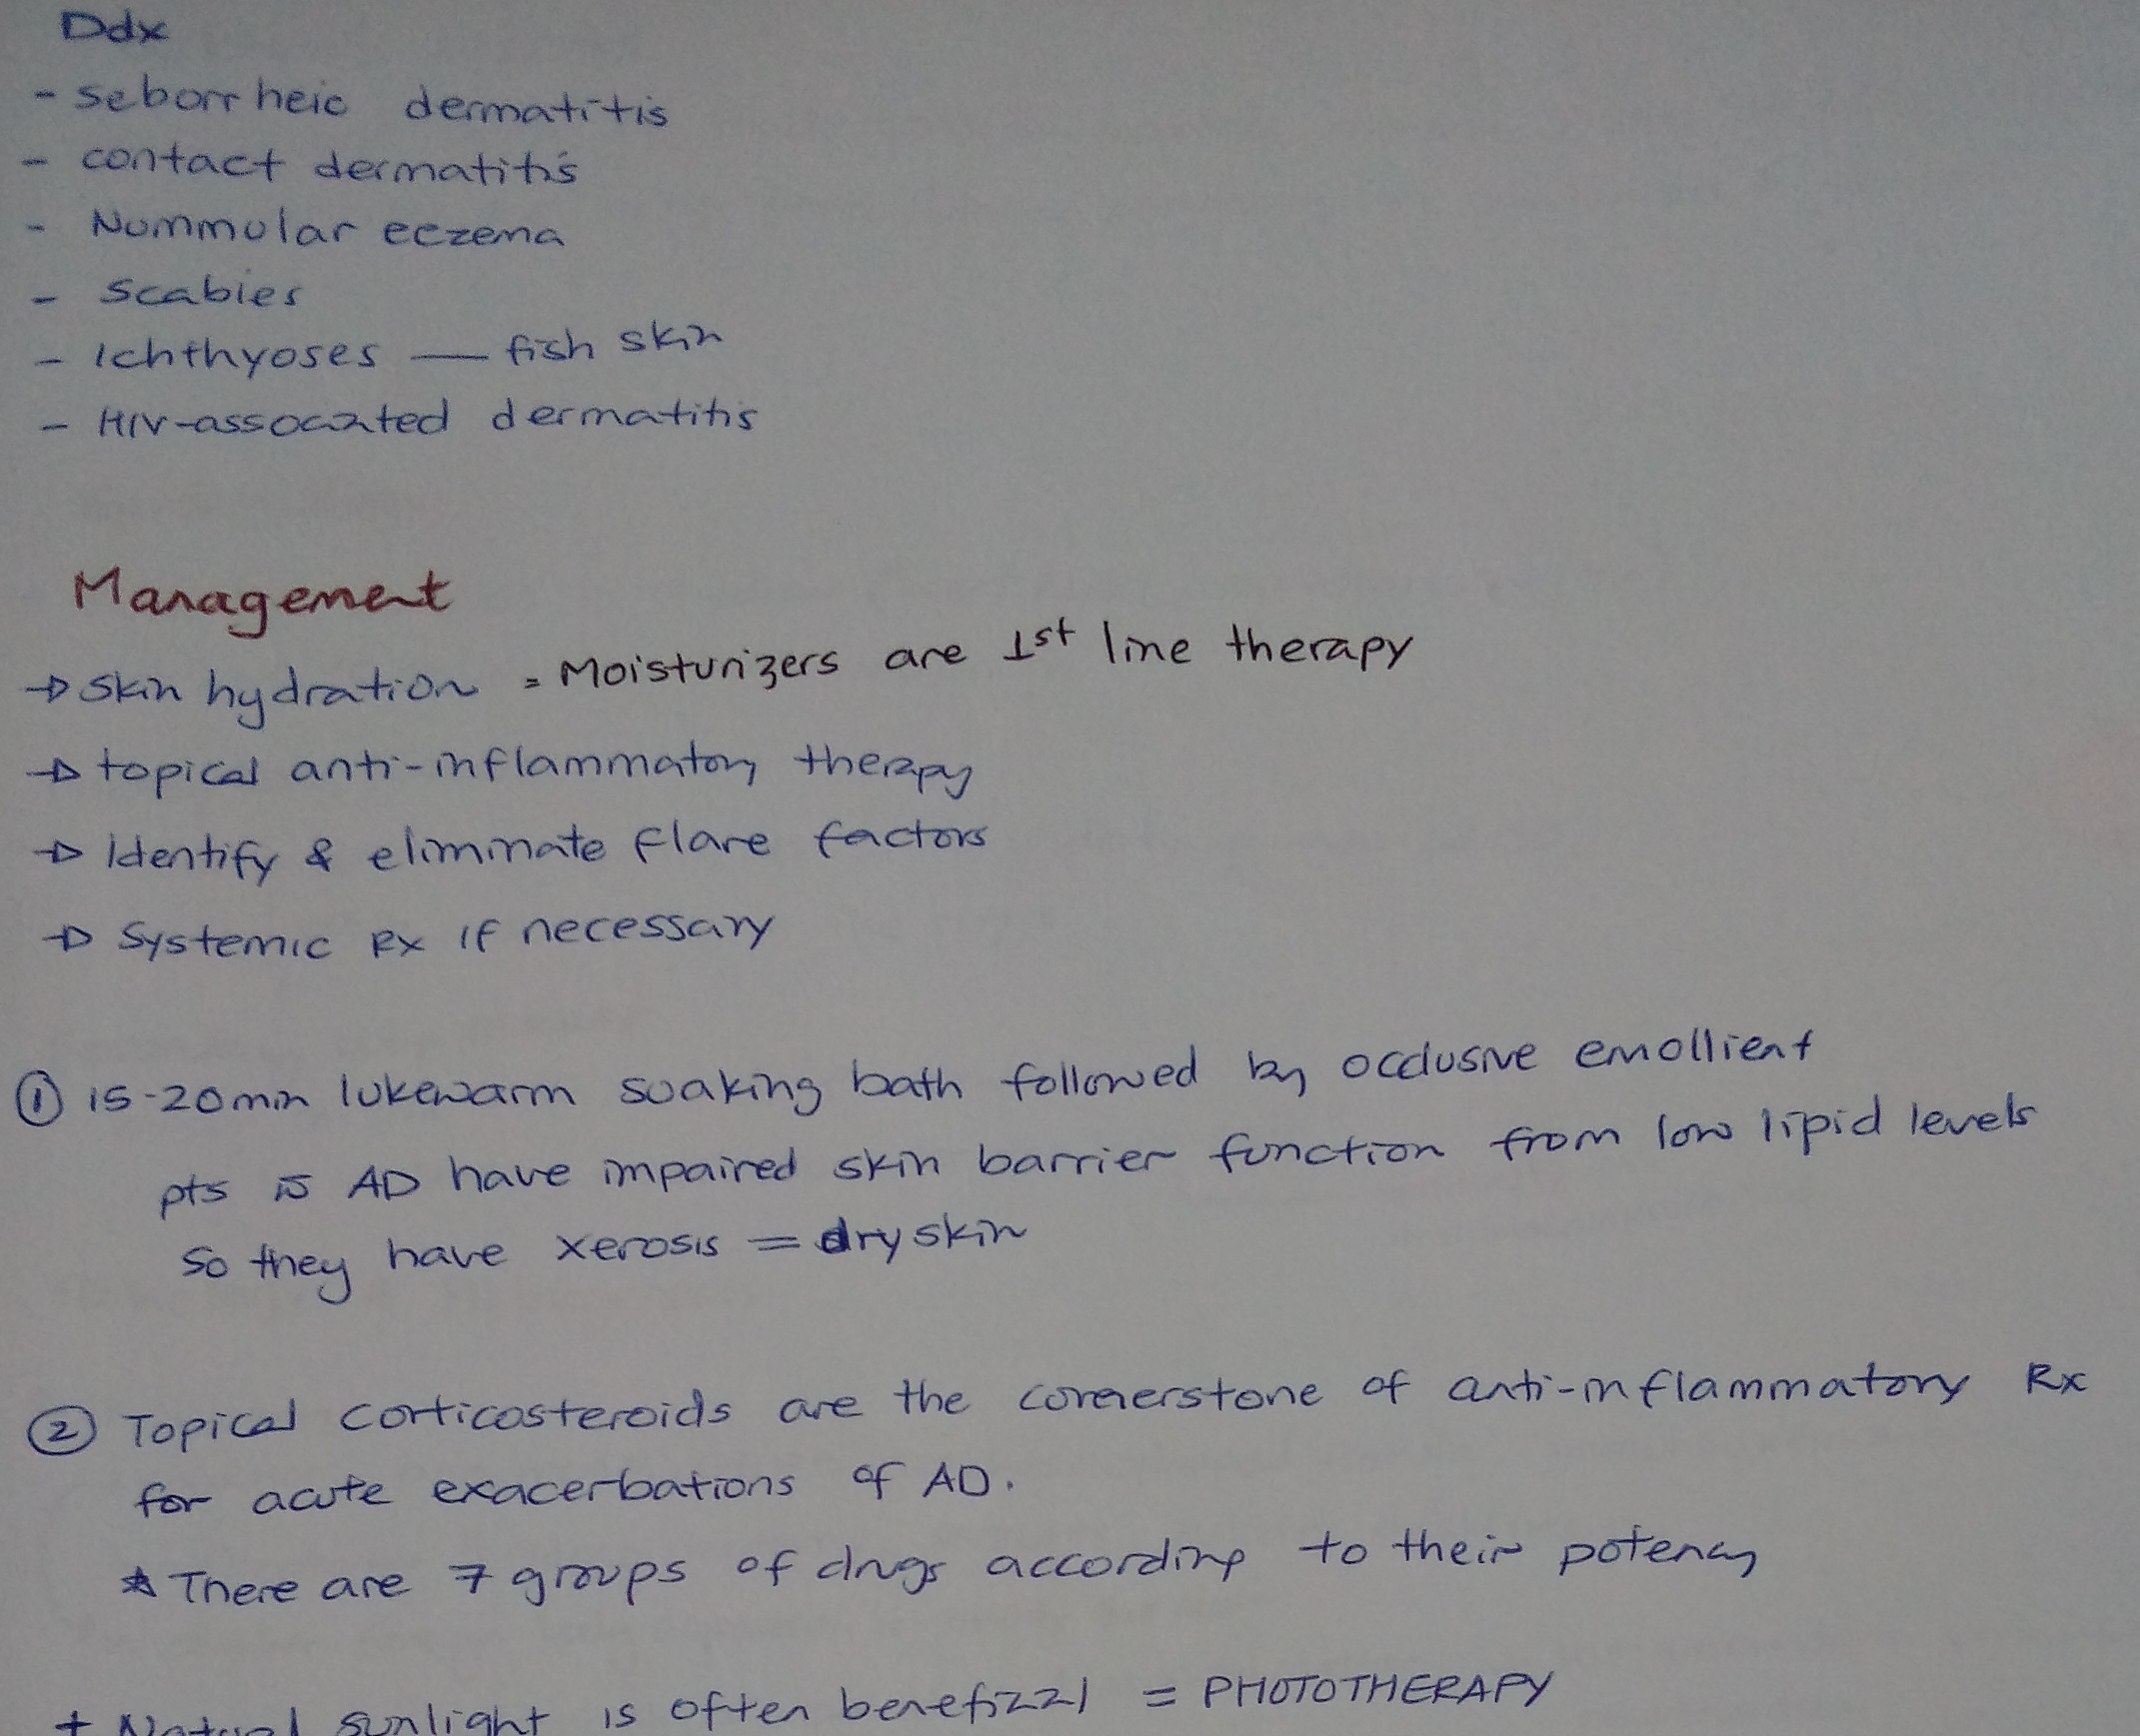 Ddx
- seborrheic dermatitis
- contact dermatitis
- Nummular eczema
- Scabies
- Ichthyoses — fish skin
- HIV-associated dermatitis
Management
→ skin hydration = Moisturizers are 1st line therapy
→ topical anti-inflammatory therapy
→ identify & eliminate flare factors
→ Systemic Rx if necessary
① 15-20min lukewarm soaking bath followed by occlusive emollient
pts c̄ AD have impaired skin barrier function from low lipid levels
so they have xerosis = dry skin
② Topical corticosteroids are the cornerstone of anti-inflammatory Rx
for acute exacerbations of AD.
* There are 7 groups of drugs according to their potency
+ Natural sunlight is often beneficial = PHOTOTHERAPY